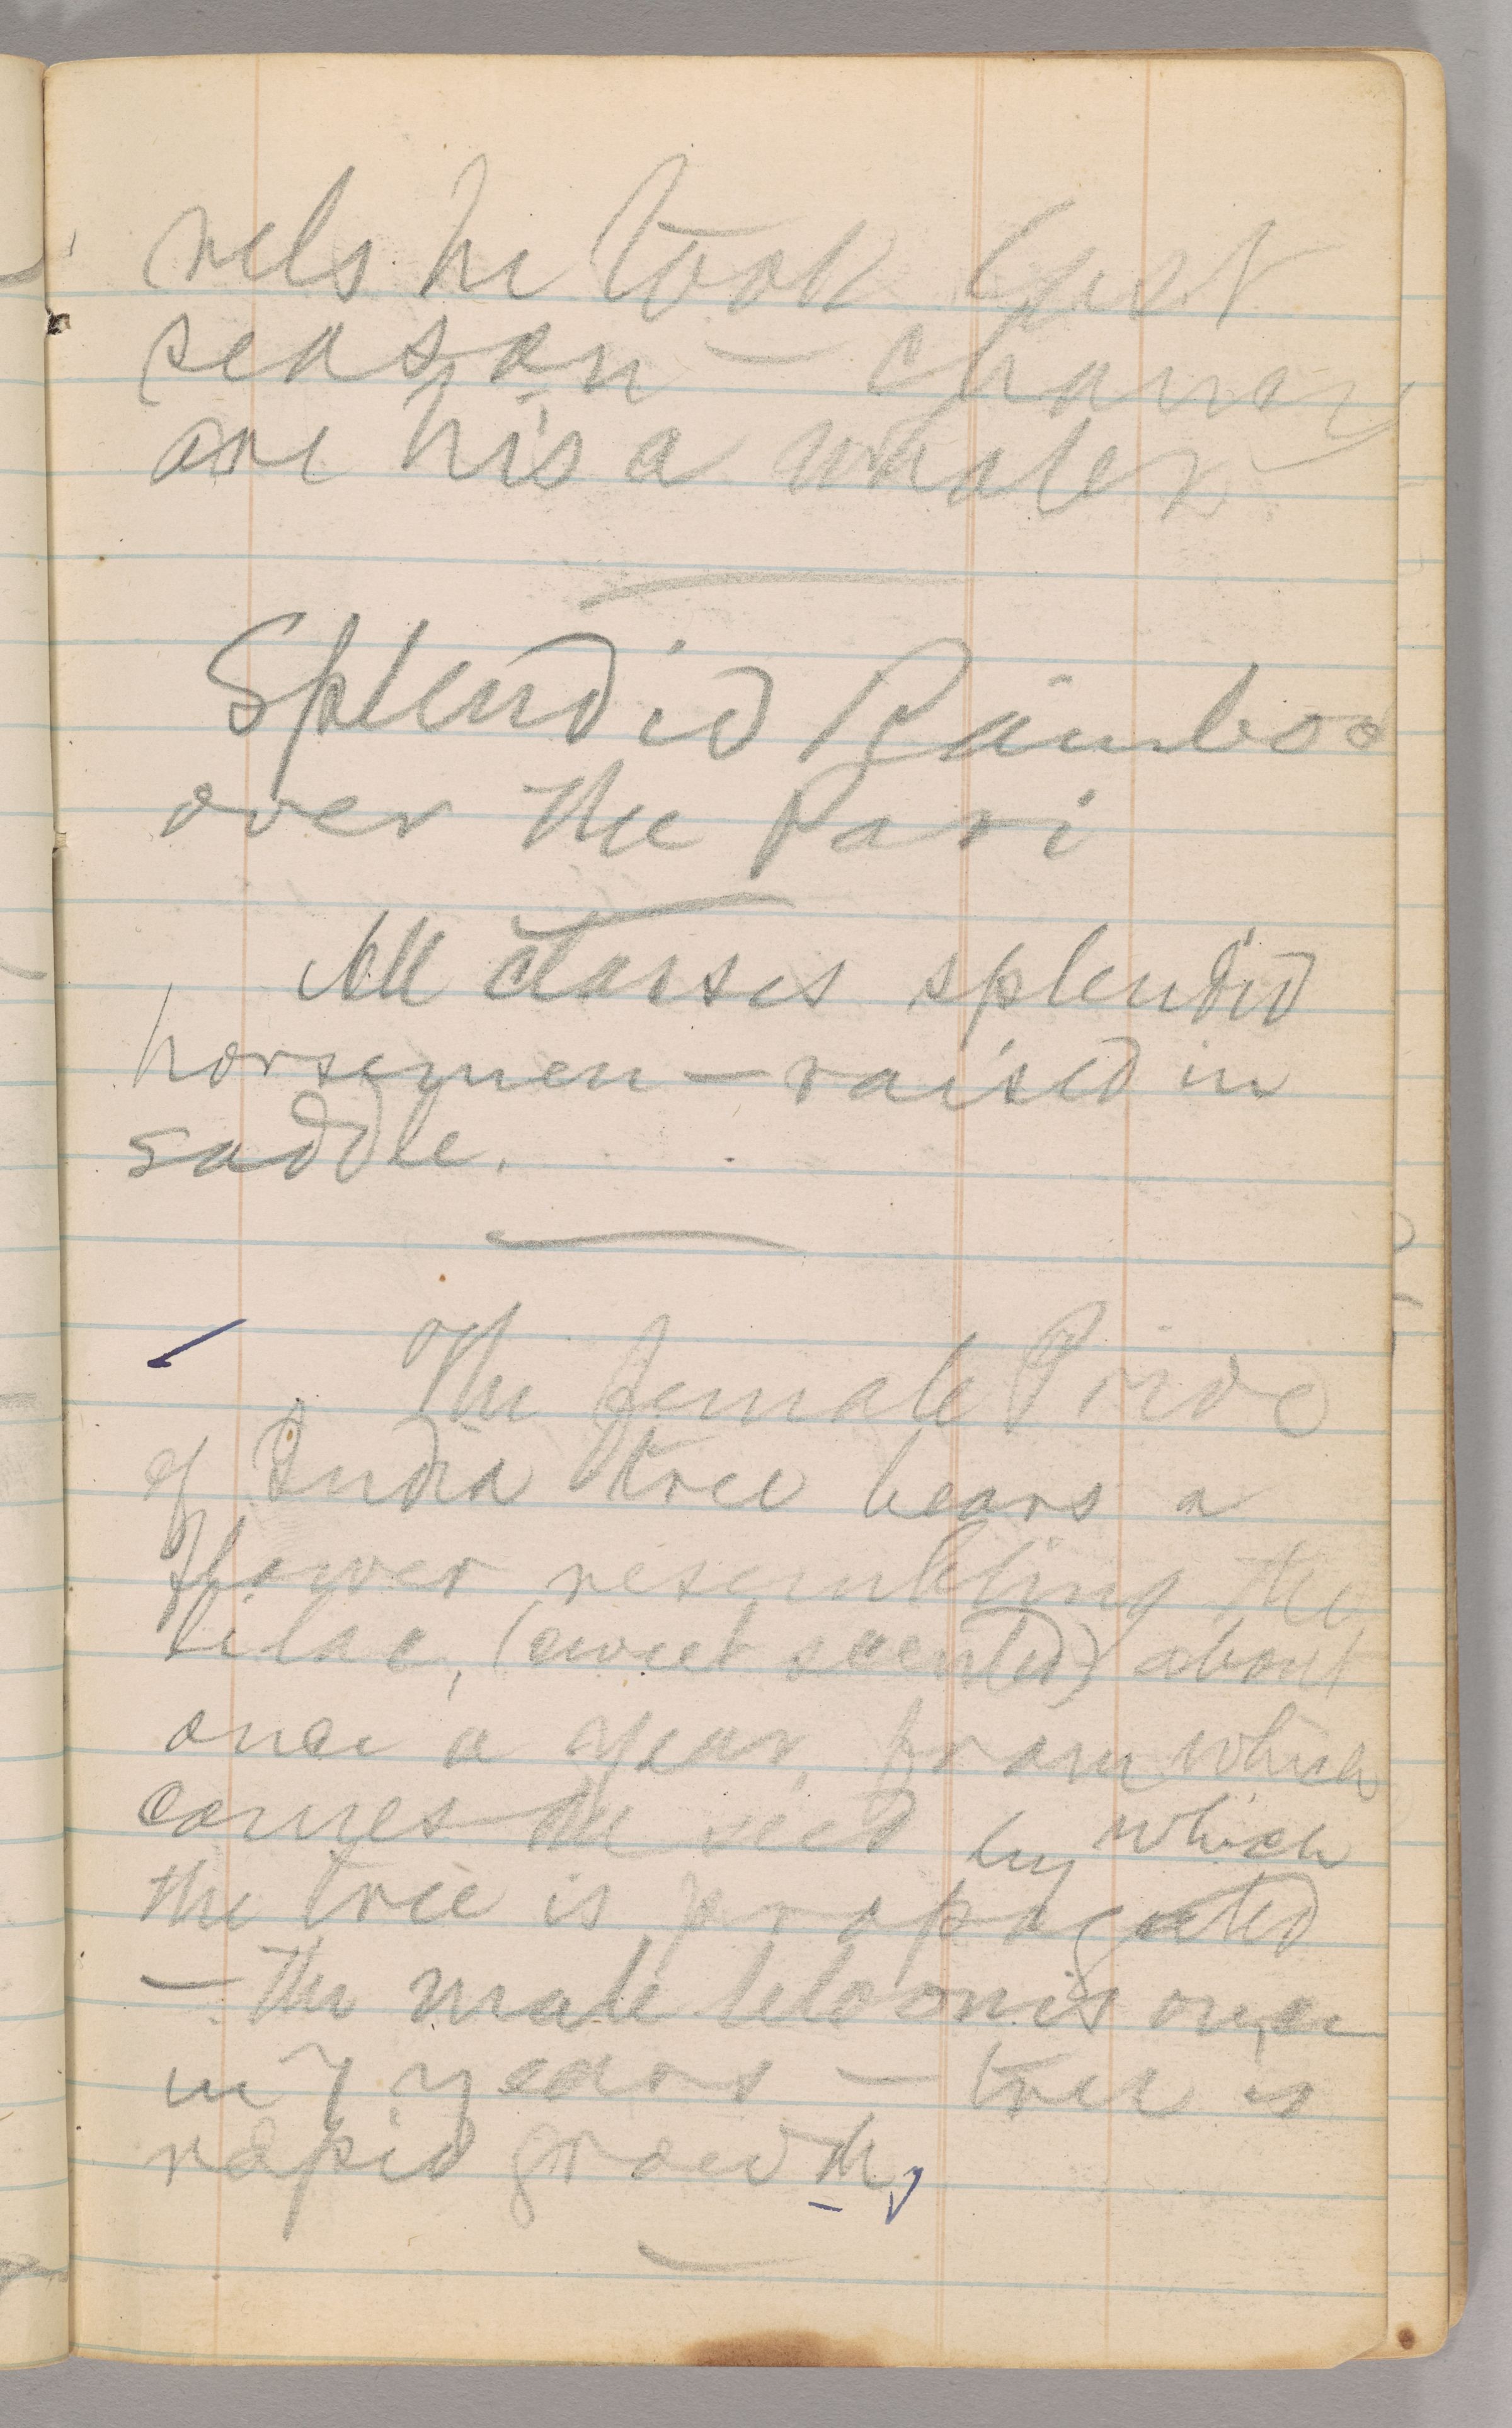 rels he took last
season —
are his a whaler
Splendid Rainbo
over the Pari
All classes splendid
horsemen — raised in
saddle.
The female Pride
of India tree bears a
flower resembling the
lilac, (sweet scented) about
once a year, from which
comes the seed by which
the tree is propagated
— the male blooms once
in 7 years — tree is
rapid growth,